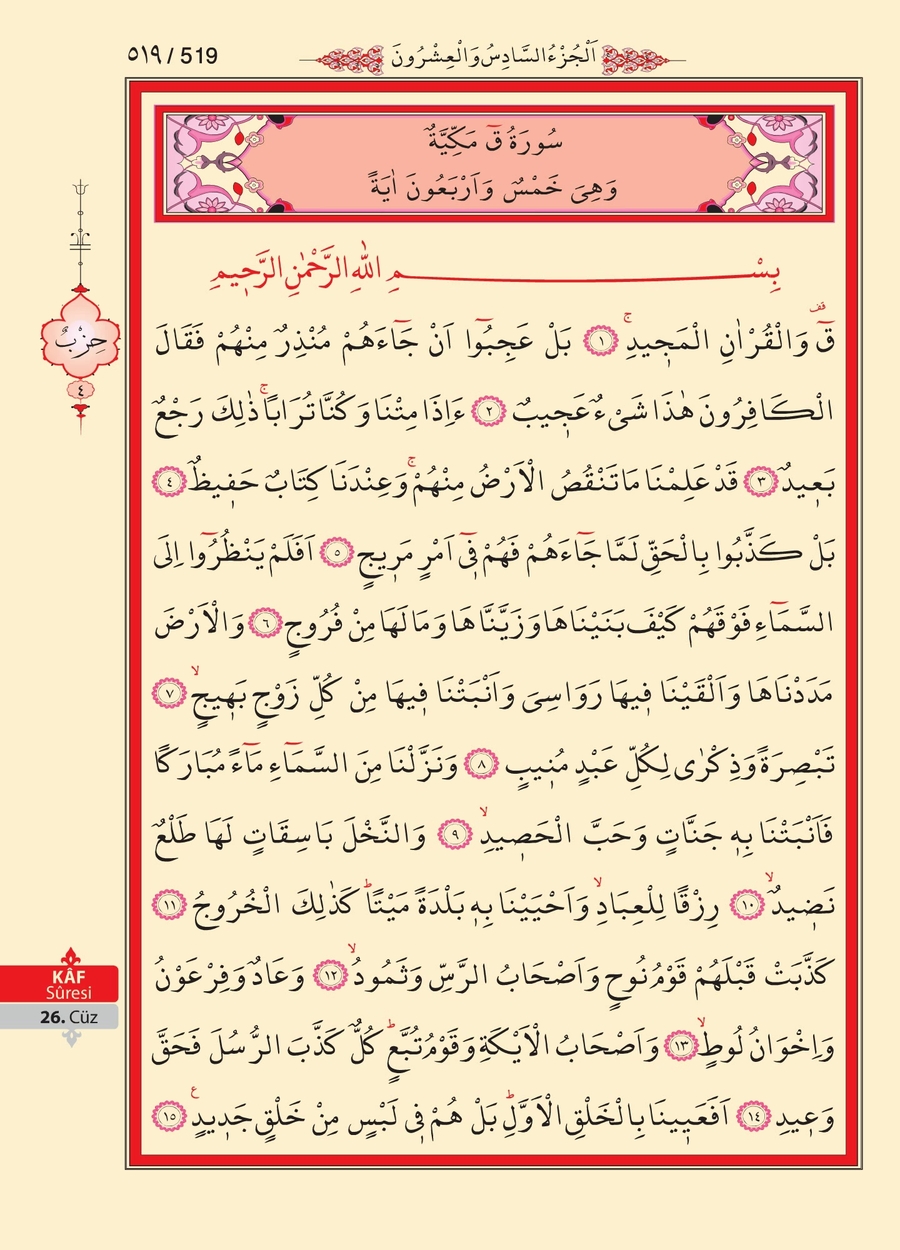 ٥١٩ / 519
اَلْجُزْءُ السَّادِسُ وَالْعِشْرُونَ
سُورَةُ قٓ مَكِّيَّةٌ
وَهِىَ خَمْسٌ وَاَرْبَعُونَ اٰيَةً
بِسْمِ اللّٰهِ الرَّحْمٰنِ الرَّحٖيمِ
قٓ وَالْقُرْاٰنِ الْمَجٖيدِۚ ﴿١﴾ بَلْ عَجِبُٓوا اَنْ جَٓاءَهُمْ مُنْذِرٌ مِنْهُمْ فَقَالَ
الْكَافِرُونَ هٰذَا شَىْءٌ عَجٖيبٌ ﴿٢﴾ ءَاِذَا مِتْنَا وَكُنَّا تُرَابًاۚ ذٰلِكَ رَجْعٌ
بَعٖيدٌ ﴿٣﴾ قَدْ عَلِمْنَا مَا تَنْقُصُ الْاَرْضُ مِنْهُمْۚ وَعِنْدَنَا كِتَابٌ حَفٖيظٌ ﴿٤﴾
بَلْ كَذَّبُوا بِالْحَقِّ لَمَّا جَٓاءَهُمْ فَهُمْ فٖٓى اَمْرٍ مَرٖيجٍ ﴿٥﴾ اَفَلَمْ يَنْظُرُٓوا اِلَى
السَّمَٓاءِ فَوْقَهُمْ كَيْفَ بَنَيْنَاهَا وَزَيَّنَّاهَا وَمَا لَهَا مِنْ فُرُوجٍ ﴿٦﴾ وَالْاَرْضَ
مَدَدْنَاهَا وَاَلْقَيْنَا فٖيهَا رَوَاسِىَ وَاَنْبَتْنَا فٖيهَا مِنْ كُلِّ زَوْجٍ بَهٖيجٍۙ ﴿٧﴾
تَبْصِرَةً وَذِكْرٰى لِكُلِّ عَبْدٍ مُنٖيبٍ ﴿٨﴾ وَنَزَّلْنَا مِنَ السَّمَٓاءِ مَٓاءً مُبَارَكًا
فَاَنْبَتْنَا بِهٖ جَنَّاتٍ وَحَبَّ الْحَصٖيدِۙ ﴿٩﴾ وَالنَّخْلَ بَاسِقَاتٍ لَهَا طَلْعٌ
نَضٖيدٌۙ ﴿١٠﴾ رِزْقًا لِلْعِبَادِۙ وَاَحْيَيْنَا بِهٖ بَلْدَةً مَيْتًاؕ كَذٰلِكَ الْخُرُوجُ ﴿١١﴾
كَذَّبَتْ قَبْلَهُمْ قَوْمُ نُوحٍ وَاَصْحَابُ الرَّسِّ وَثَمُودُۙ ﴿١٢﴾ وَعَادٌ وَفِرْعَوْنُ
وَاِخْوَانُ لُوطٍۙ ﴿١٣﴾ وَاَصْحَابُ الْاَيْكَةِ وَقَوْمُ تُبَّعٍؕ كُلٌّ كَذَّبَ الرُّسُلَ فَحَقَّ
وَعٖيدِ ﴿١٤﴾ اَفَعَيٖينَا بِالْخَلْقِ الْاَوَّلِؕ بَلْ هُمْ فٖى لَبْسٍ مِنْ خَلْقٍ جَدٖيدٍࣖ ﴿١٥﴾
حِزْبٌ
٤
KÂF
Sûresi
26. Cüz